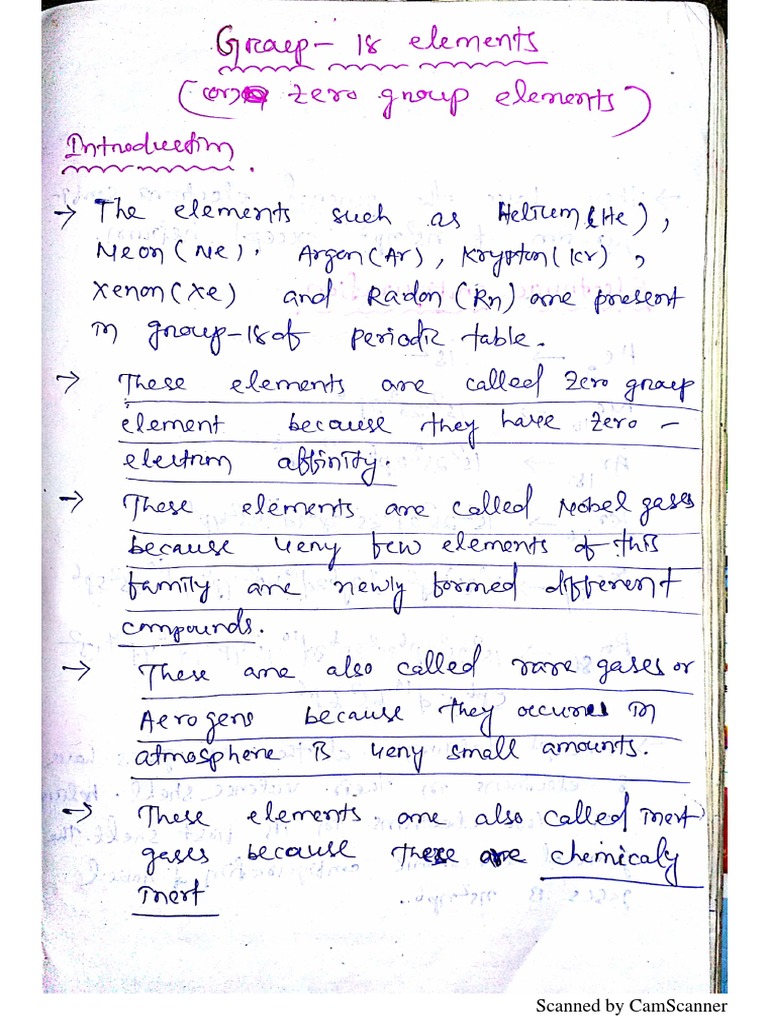 Group - 18 elements
(or) zero group elements)
Introduction.
→ The elements such as Helium(He),
Neon(Ne). Argon(Ar), Krypton(Kr),
Xenon(Xe) and Radon(Rn) are present
in group-18 of periodic table.
→ These elements are called Zero group
element because they have zero -
electron affinity.
→ These elements are called Nobel gases
because very few elements of this
family are newly formed different
compounds.
→ These are also called rare gases or
Aerogens because they occures in
atmosphere is very small amounts.
→ These elements are also called inert
gases because these are chemicaly
inert
Scanned by CamScanner